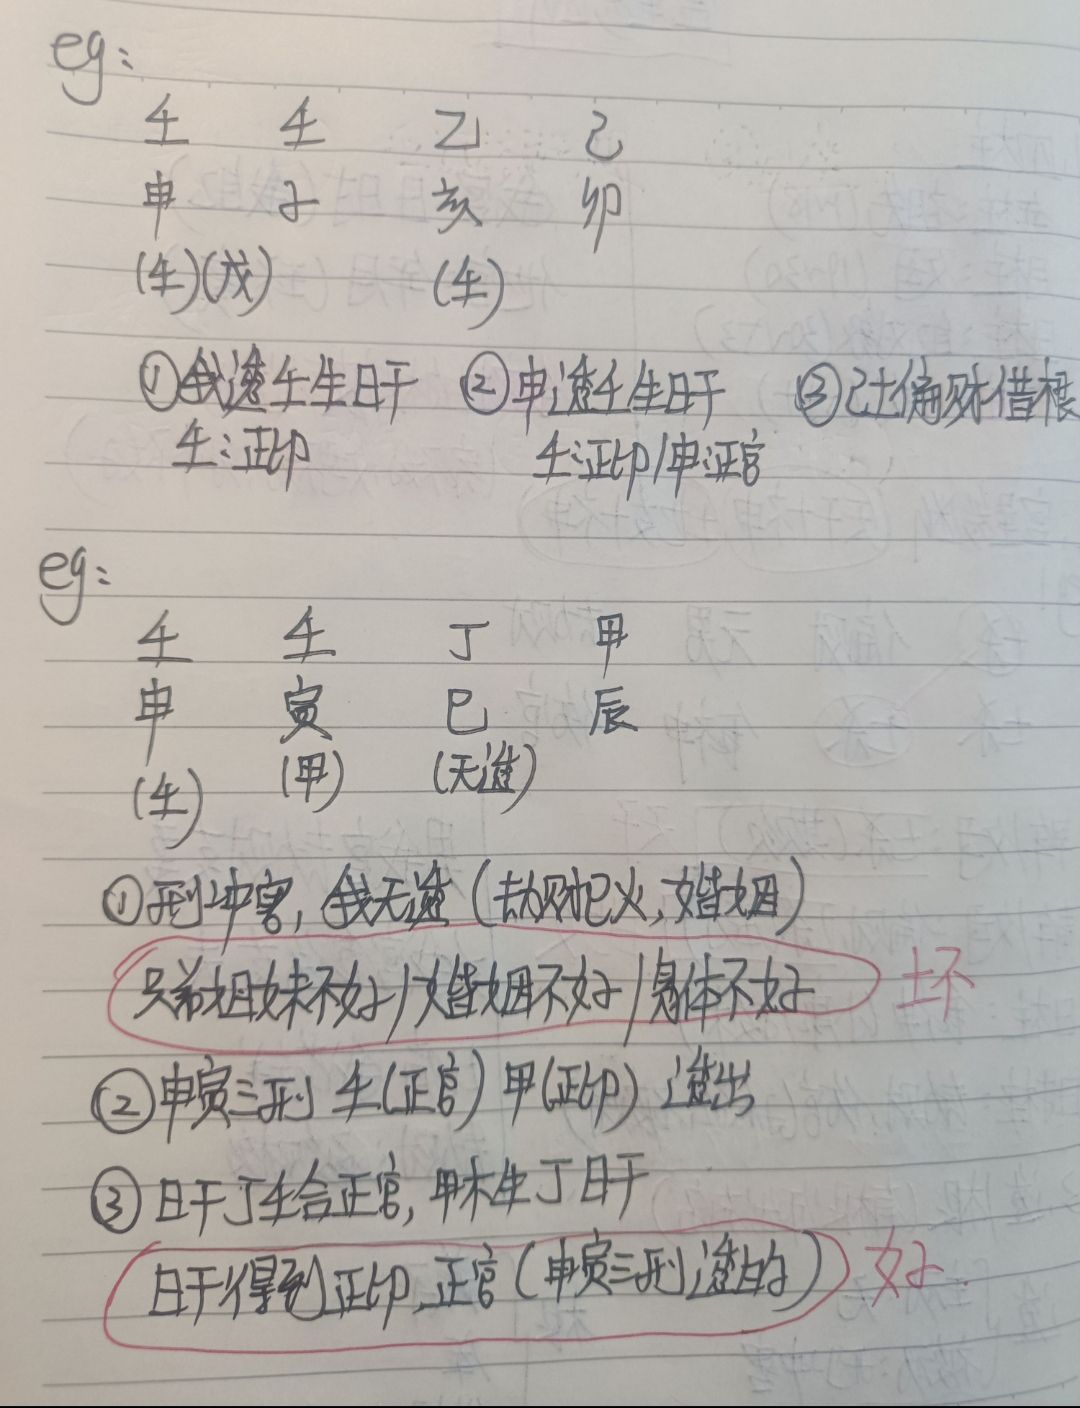 eg:
壬 壬 乙 己
申 子 亥 卯
(壬)(戊) (壬)
①我透壬生日干 ②申透壬生日干 ③己土偏财借根
壬:正印 壬:正印/申:正官
eg:
壬 壬 丁 甲
申 寅 巳 辰
(壬) (甲) (无透)
①刑冲害,我无透(劫财巳火,婚姻)
兄弟姐妹不好/婚姻不好/身体不好 坏
②申寅三刑 壬(正官)甲(正印)透出
③日干丁壬合正官,甲木生丁日干
日干得到正印,正官(申寅三刑透的) 好